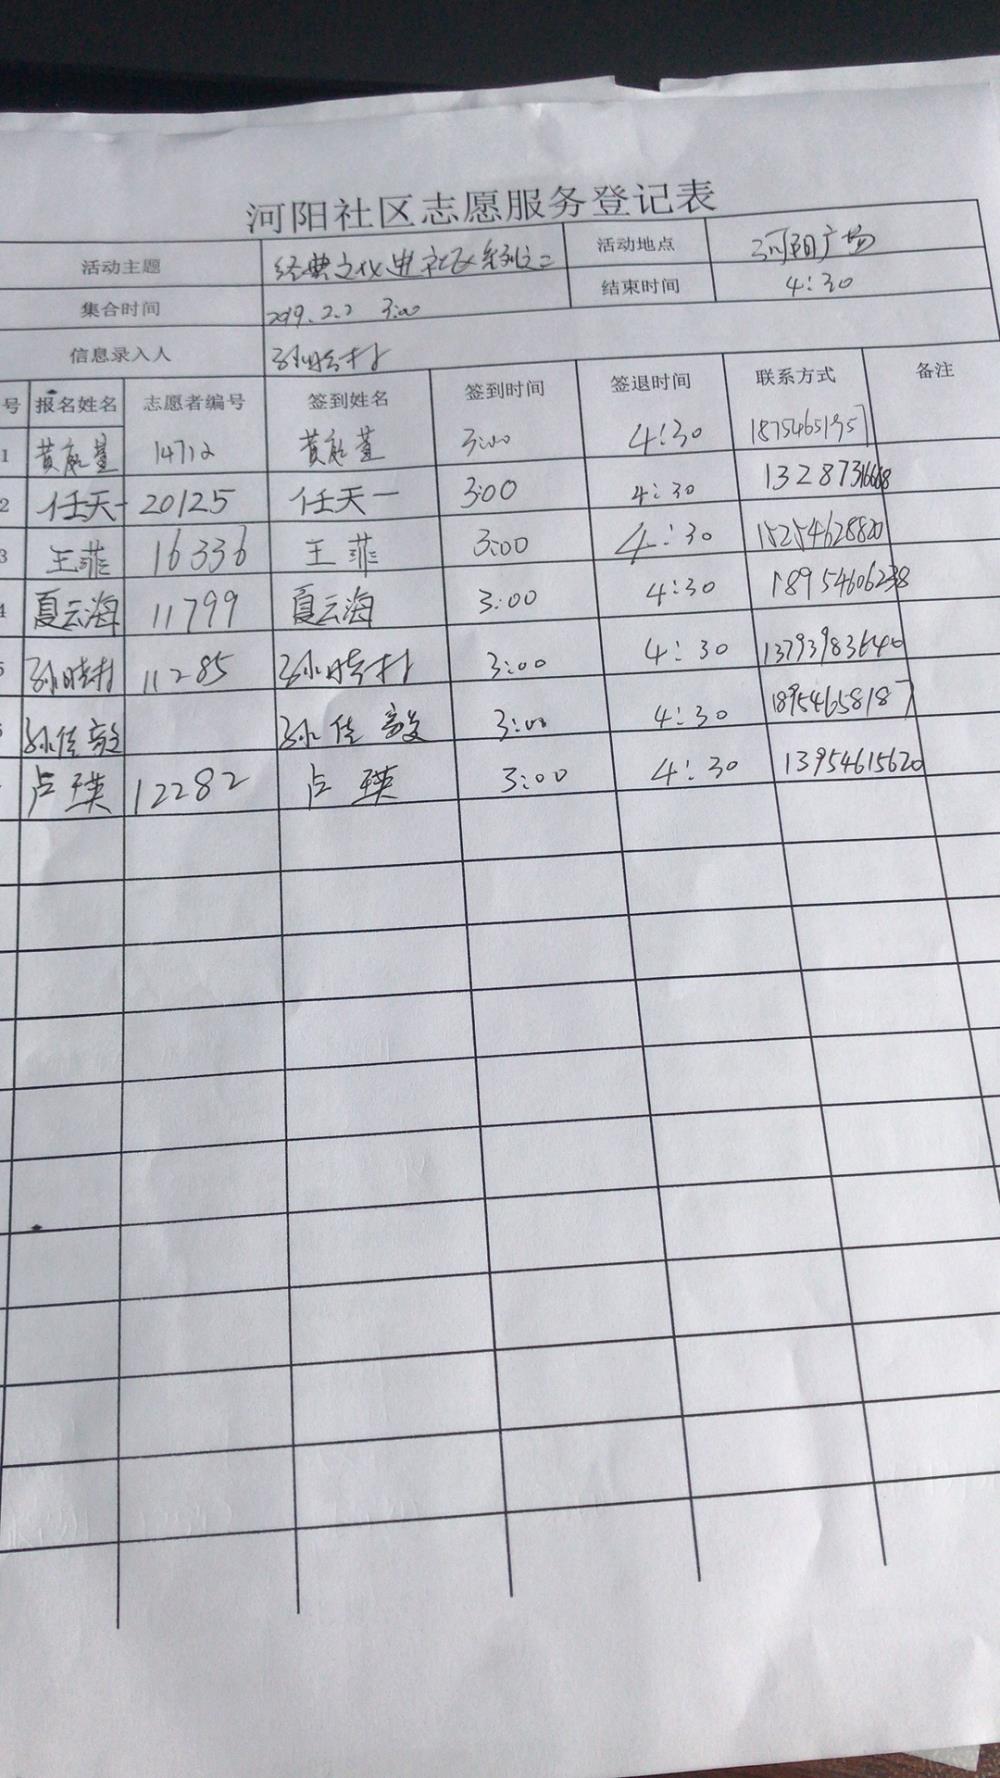 河阳社区志愿服务登记表
活动主题 经典文化进社区系列之二 活动地点 河阳广场
集合时间 2019.2.2 3:00 结束时间 4:30
信息录入人 孙晓村
号 报名姓名 志愿者编号 签到姓名 签到时间 签退时间 联系方式 备注
1 黄 14712 黄 3:00 4:30
2 任天一 20125 任天一 3:00 4:30 13287316668
3 王菲 16336 王菲 3:00 4:30 15254628820
4 夏云海 11799 夏云海 3:00 4:30 18954606238
5 孙晓村 11285 孙晓村 3:00 4:30 13793983640
6 孙佳毅 孙佳毅 3:00 4:30 18954658187
卢瑛 12282 卢瑛 3:00 4:30 13954615620